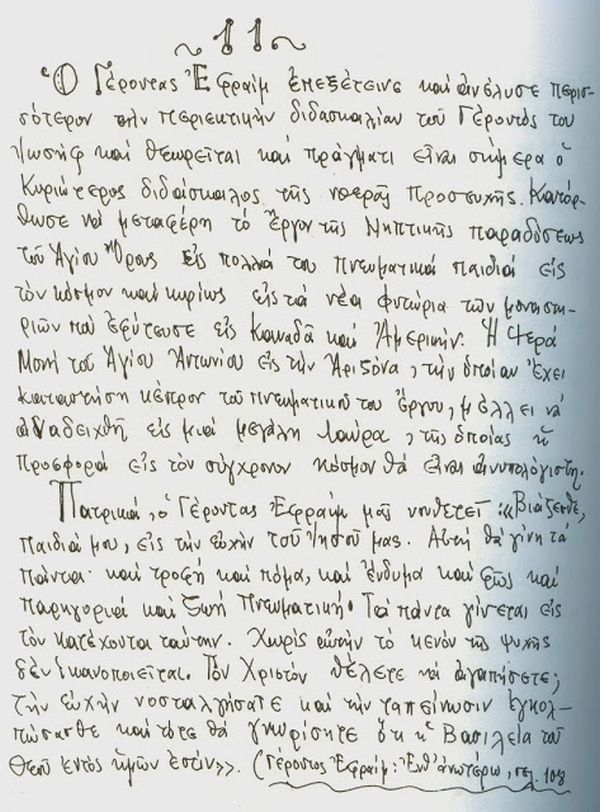 11
Ὁ Γέροντας Ἐφραὶμ ἐπεξέτεινε καὶ ἀνέλυσε περισ-
σότερον τὴν περιεκτικὴν διδασκαλίαν τοῦ Γέροντός του
Ἰωσὴφ καὶ θεωρεῖται καὶ πράγματι εἶναι σήμερα ὁ
Κυριώτερος διδάσκαλος τῆς νοερᾶς προσευχῆς. Κατόρ-
θωσε νὰ μεταφέρη τὸ ἔργον τῆς Νηπτικῆς παραδόσεως
τοῦ Ἁγίου Ὄρους εἰς πολλά του πνευματικά παιδιά εἰς
τὸν κόσμον καὶ κυρίως εἰς τὰ νέα φυτώρια τῶν μοναστη-
ριῶν ποὺ ἐφύτευσε εἰς Καναδᾶ καὶ Ἀμερικήν. Ἡ Ἱερά
Μονὴ τοῦ Ἁγίου Ἀντωνίου εἰς τὴν Ἀριζόνα, τὴν ὁποίαν ἔχει
καταστήση κέντρον τοῦ πνευματικοῦ του ἔργου, μέλλει νά
ἀναδειχθῆ εἰς μιά μεγάλη Λαύρα, τῆς ὁποίας ἡ
προσφορά εἰς τὸν σύγχρονον κόσμον θά εἶναι ἀνυπολόγιστη.
Πατρικά, ὁ Γέροντας Ἐφραὶμ μᾶς νουθετεῖ: «Βιάζεσθε,
παιδιά μου, εἰς τὴν εὐχὴν τοῦ Ἰησοῦ μας. Αὐτὴ θά γίνη τὰ
πάντα· καὶ τροφή καὶ πόμα, καὶ ἔνδυμα καὶ φῶς καὶ
παρηγοριά καὶ ζωή Πνευματική. Τὰ πάντα γίνεται εἰς
τὸν κατέχοντα ταύτην. Χωρὶς αὐτὴν τὸ κενὸν τῆς ψυχῆς
δὲν ἱκανοποιεῖται. Τὸν Χριστὸν θέλετε νὰ ἀγαπήσετε;
τὴν εὐχὴν νοσταλγήσατε καὶ τὴν ταπείνωσιν ἐγκολ-
πώσασθε καὶ τότε θά γνωρίσητε ὅτι ἡ Βασιλεία τοῦ
Θεοῦ ἐντὸς ἡμῶν ἐστίν». (Γέροντος Ἐφραίμ: Ἔνθ' ἀνωτέρω, σελ. 108